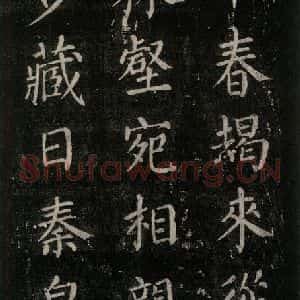 春揭來從
壑宛相親
藏日秦皇
Shufawang.CN